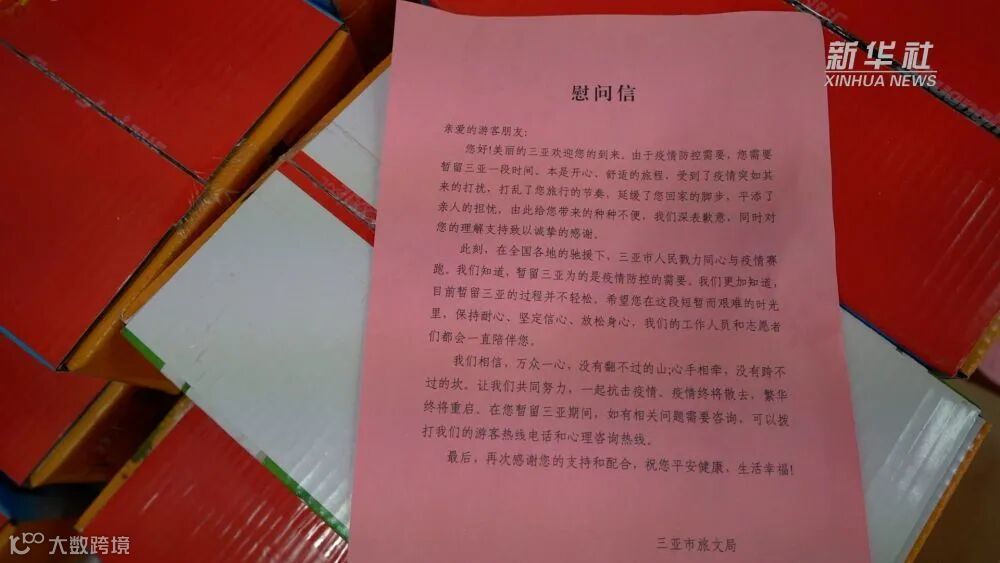 新华社
XINHUA NEWS
慰问信
亲爱的游客朋友:
您好!美丽的三亚欢迎您的到来。由于疫情防控需要,您需要
暂留三亚一段时间。本是开心、舒适的旅程,受到了疫情突如其
来的打扰,打乱了您旅行的节奏,延缓了您回家的脚步,平添了
亲人的担忧,由此给您带来的种种不便,我们深表歉意,同时对
您的理解支持致以诚挚的感谢。
此刻,在全国各地的驰援下,三亚市人民戮力同心与疫情赛
跑。我们知道,暂留三亚为的是疫情防控的需要。我们更加知道,
目前暂留三亚的过程并不轻松。希望您在这段短暂而艰难的时光
里,保持耐心、坚定信心、放松身心,我们的工作人员和志愿者
们都会一直陪伴您。
我们相信,万众一心,没有翻不过的山;心手相牵,没有跨不
过的坎。让我们共同努力,一起抗击疫情。疫情终将散去,繁华
终将重启。在您暂留三亚期间,如有相关问题需要咨询,可以拨
打我们的游客热线电话和心理咨询热线。
最后,再次感谢您的支持和配合,祝您平安健康,生活幸福!
三亚市旅文局
大数跨境